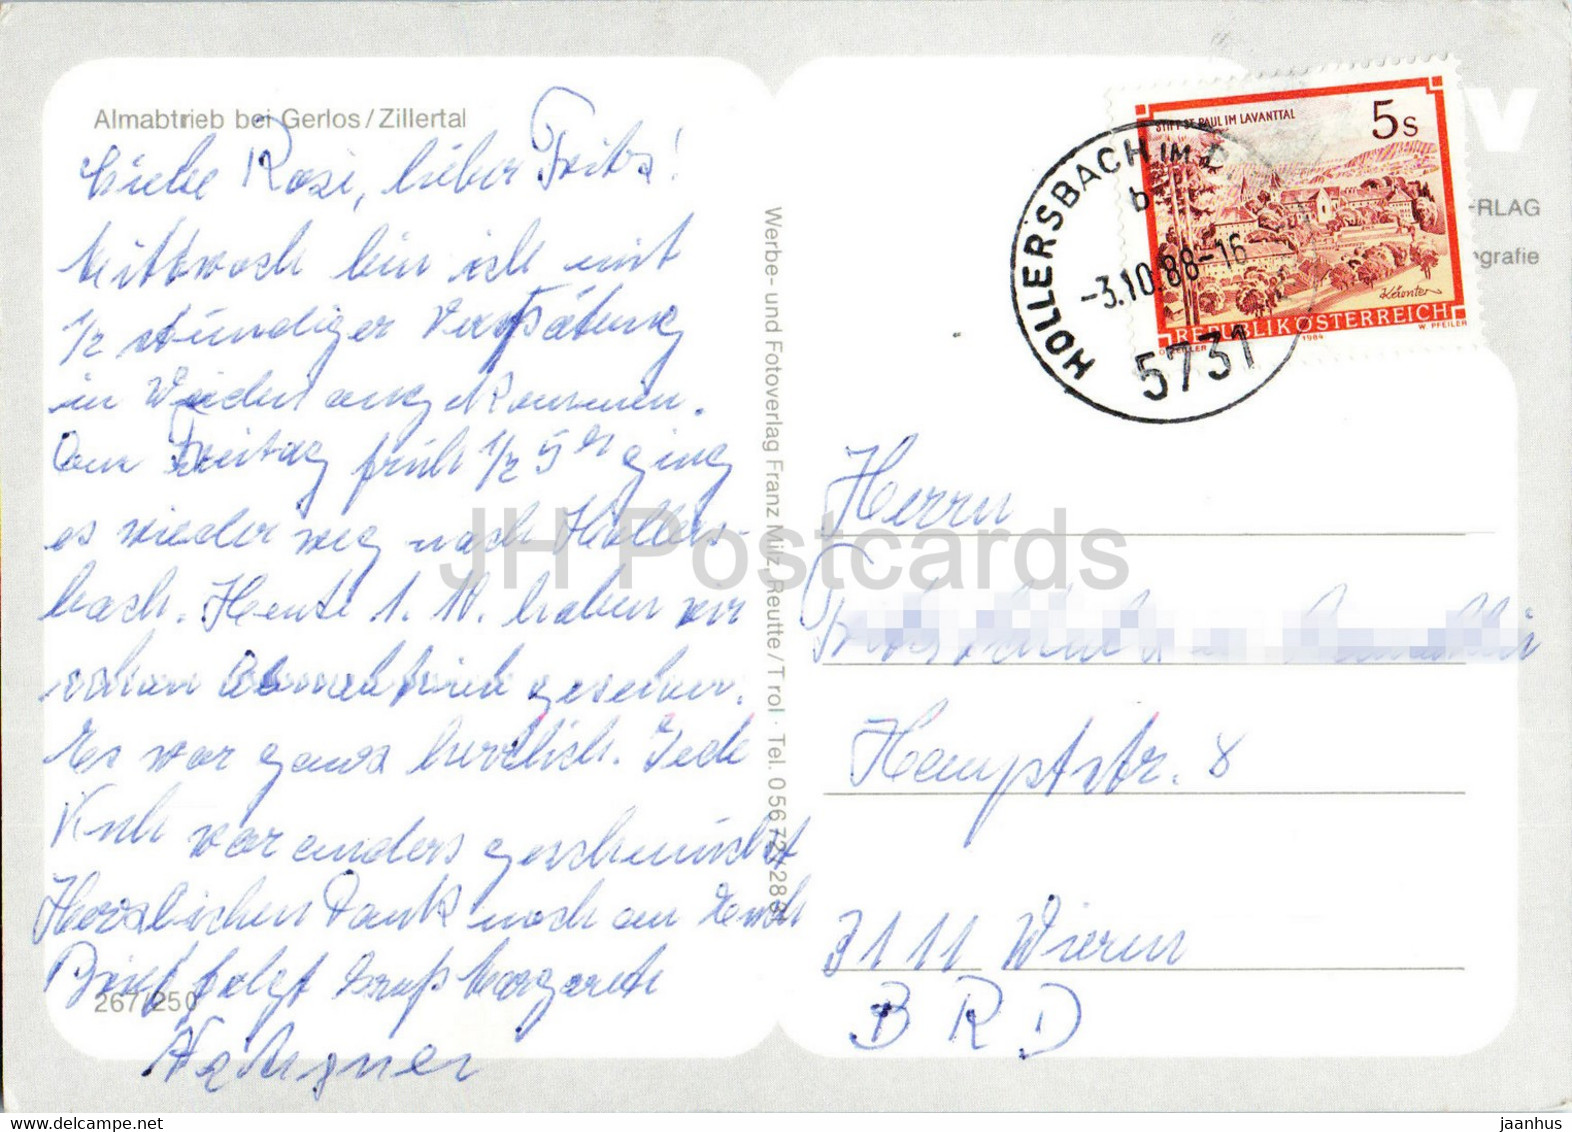 Almabtrieb bei Gerlos/Zillertal
Liebe Rosi, lieber Fritz!
Mittwoch bin ich mit
1/2 stündiger Verspätung
in angekommen.
Am Freitag früh 1/2 5 ging
es wieder weg nach Hollers-
bach. Heute 1. 10. haben wir
schon Almabtrieb gesehen.
Es war ganz herzlich. Jede
Kuh war anders geschmückt
Herzlichen Dank noch an Euch
Brief folgt Gruß Margarete
267/250
Werbe- und Fotoverlag Franz Milz, Reutte/Tirol · Tel. 05672/288
STIFT ST. PAUL IM LAVANTTAL
5 s
REPUBLIK ÖSTERREICH
1984
W. PFEILER
HOLLERSBACH IM
b
-3.10.88-16
5731
V
ERLAG
grafie
Herrn
Hauptstr. 8
3111 Wieren
BRD
JH Postcards
jaanhus